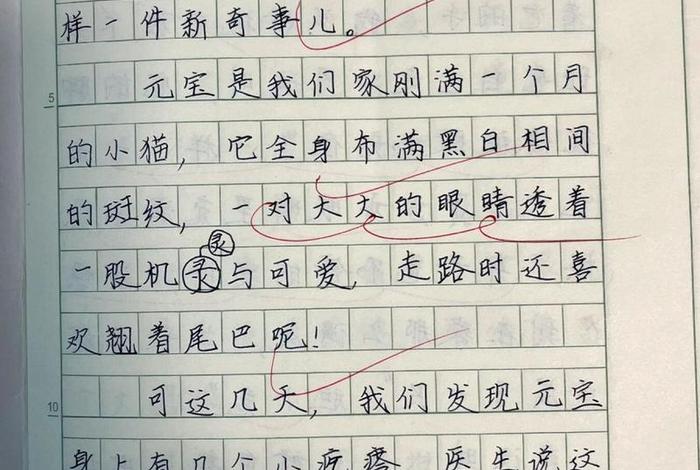 样一件新奇事儿。
5 元宝是我们家刚满一个月
的小猫，它全身布满黑白相间
的斑纹，一对大大的眼睛透着
灵
一股机灵与可爱，走路时还喜
欢翘着尾巴呢！
10 可这几天，我们发现元宝
身上有几个小疙瘩，医生说这